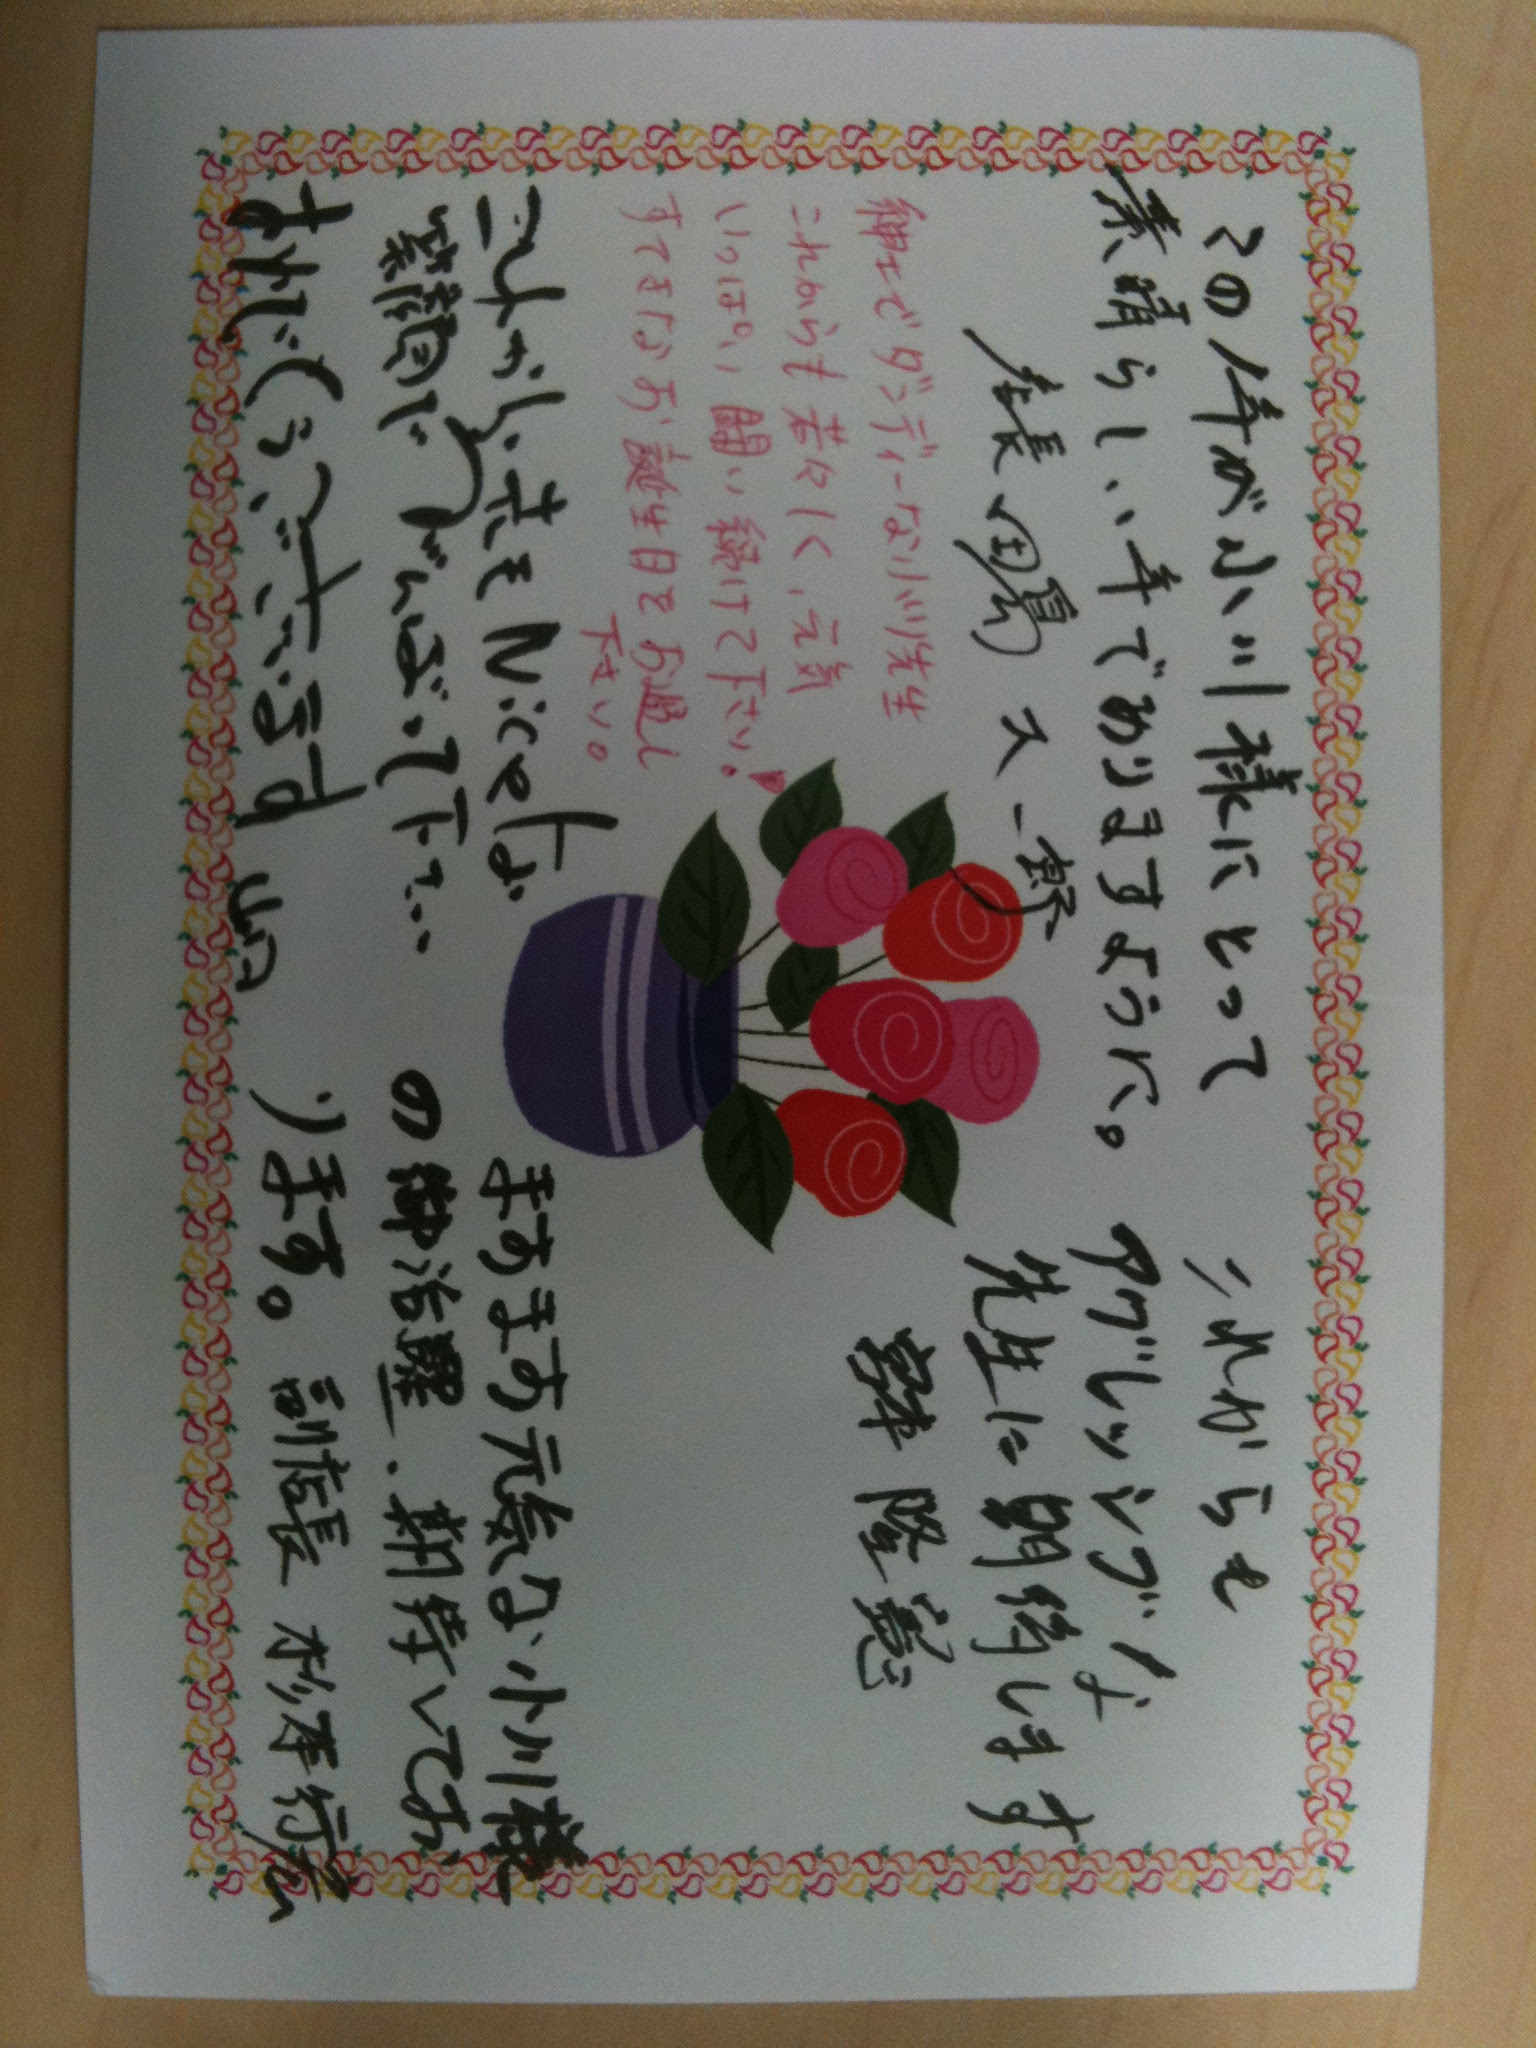 この年が小川様にとって
素晴らしい年でありますように。
店長 田島
紳士でダンディーな小川先生
これからも若々しく、元気
いっぱい闘い続けて下さい。
すてきなお誕生日をお過し
下さい。
これからもNiceな
笑顔でがんばって下さい
おめでとうございます
これからも
アグレッシブな
先生に期待します
隆憲
ますます元気な小川様
の御活躍、期待してお
ります。副店長 杉本行